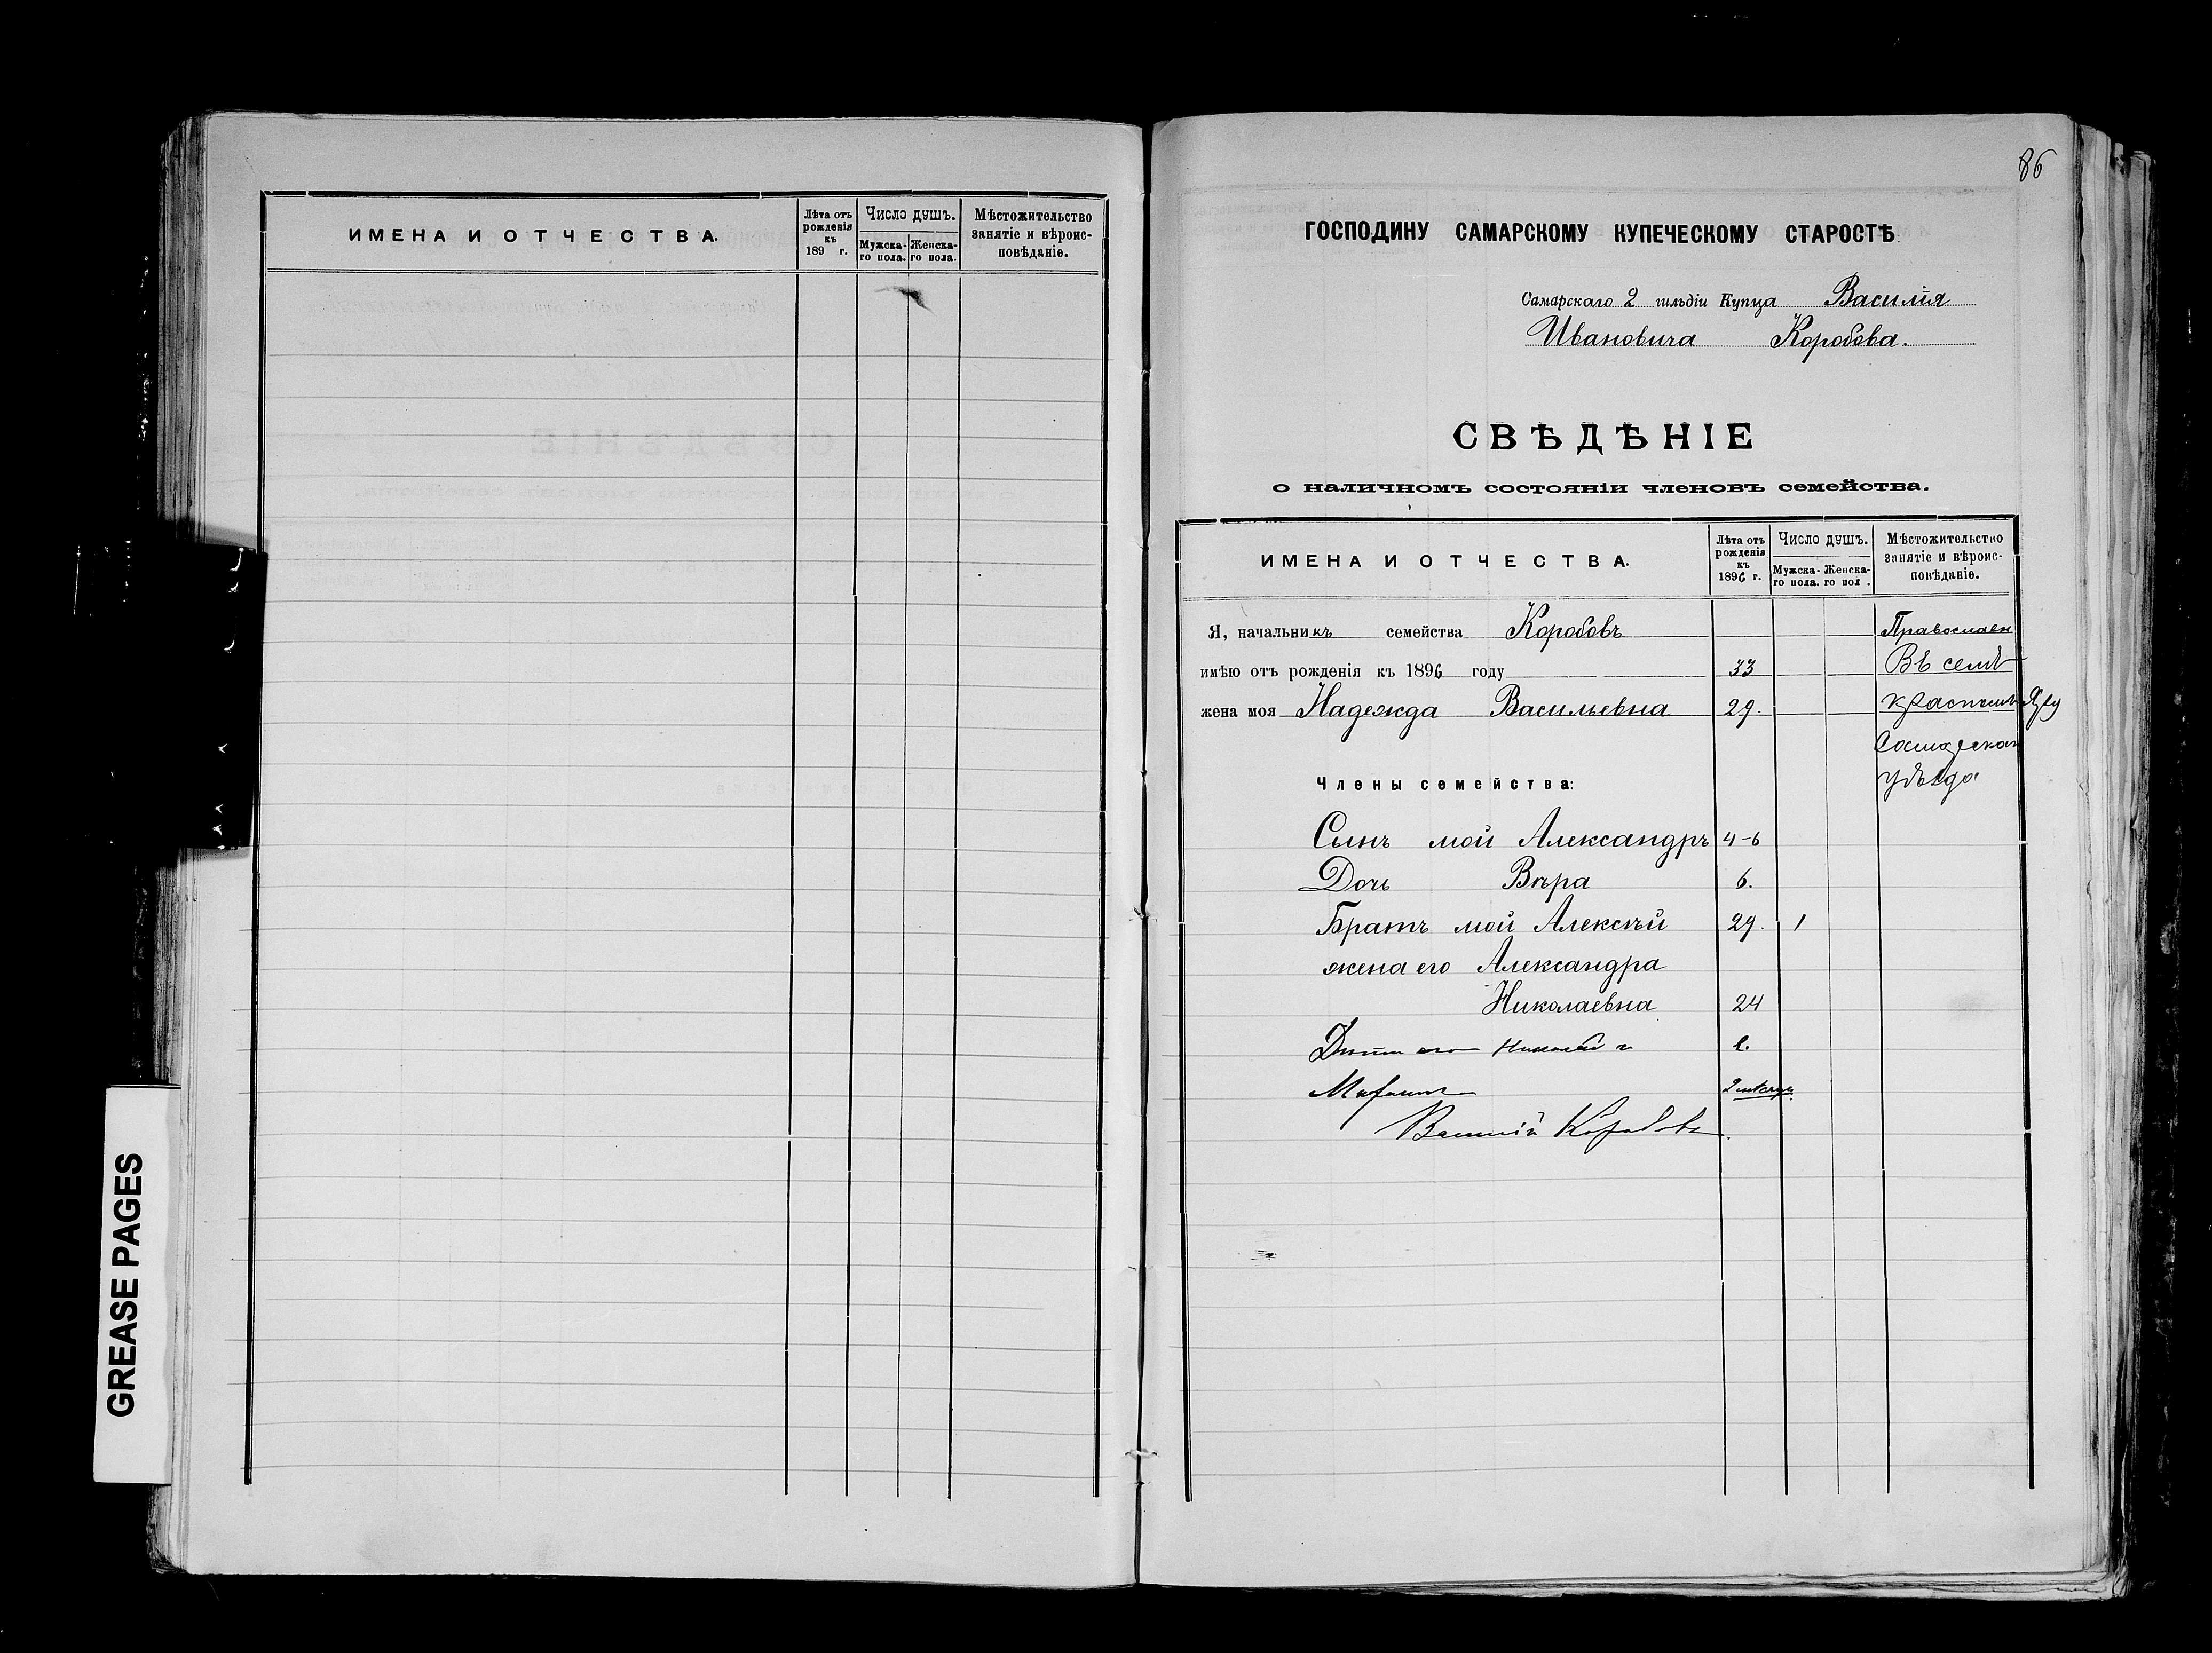 ИМЕНА И ОТЧЕСТВА.
Лѣта отъ рожденія къ 189 г.
Число душъ.
Мужска-го пола.
Женска-го пола.
Мѣстожительство занятіе и вѣроис-повѣданіе.
GREASE PAGES
86
ГОСПОДИНУ САМАРСКОМУ КУПЕЧЕСКОМУ СТАРОСТѢ
Самарскаго 2 гильдіи Купца Василія
Ивановича Коробова.
СВѢДѢНІЕ
о наличномъ состояніи членовъ семейства.
ИМЕНА И ОТЧЕСТВА.
Лѣта отъ рожденія къ 1896 г.
Число душъ.
Мужска-го пола.
Женска-го пол .
Мѣстожительство занятіе и вѣроис-повѣданіе.
Я, начальникъ семейства Коробовъ Православн
имѣю отъ рожденія къ 1896 году 33 Въ селѣ
жена моя Надежда Васильевна 29.
уѣзда
Члены семейства:
Сынъ мой Александръ 4-6
Дочь Вѣра 6.
Братъ мой Алексѣй 29. 1
жена его Александра
Николаевна 24
Дѣти его Николай и 2.
2 мѣсяц.
Василій Коробовъ.